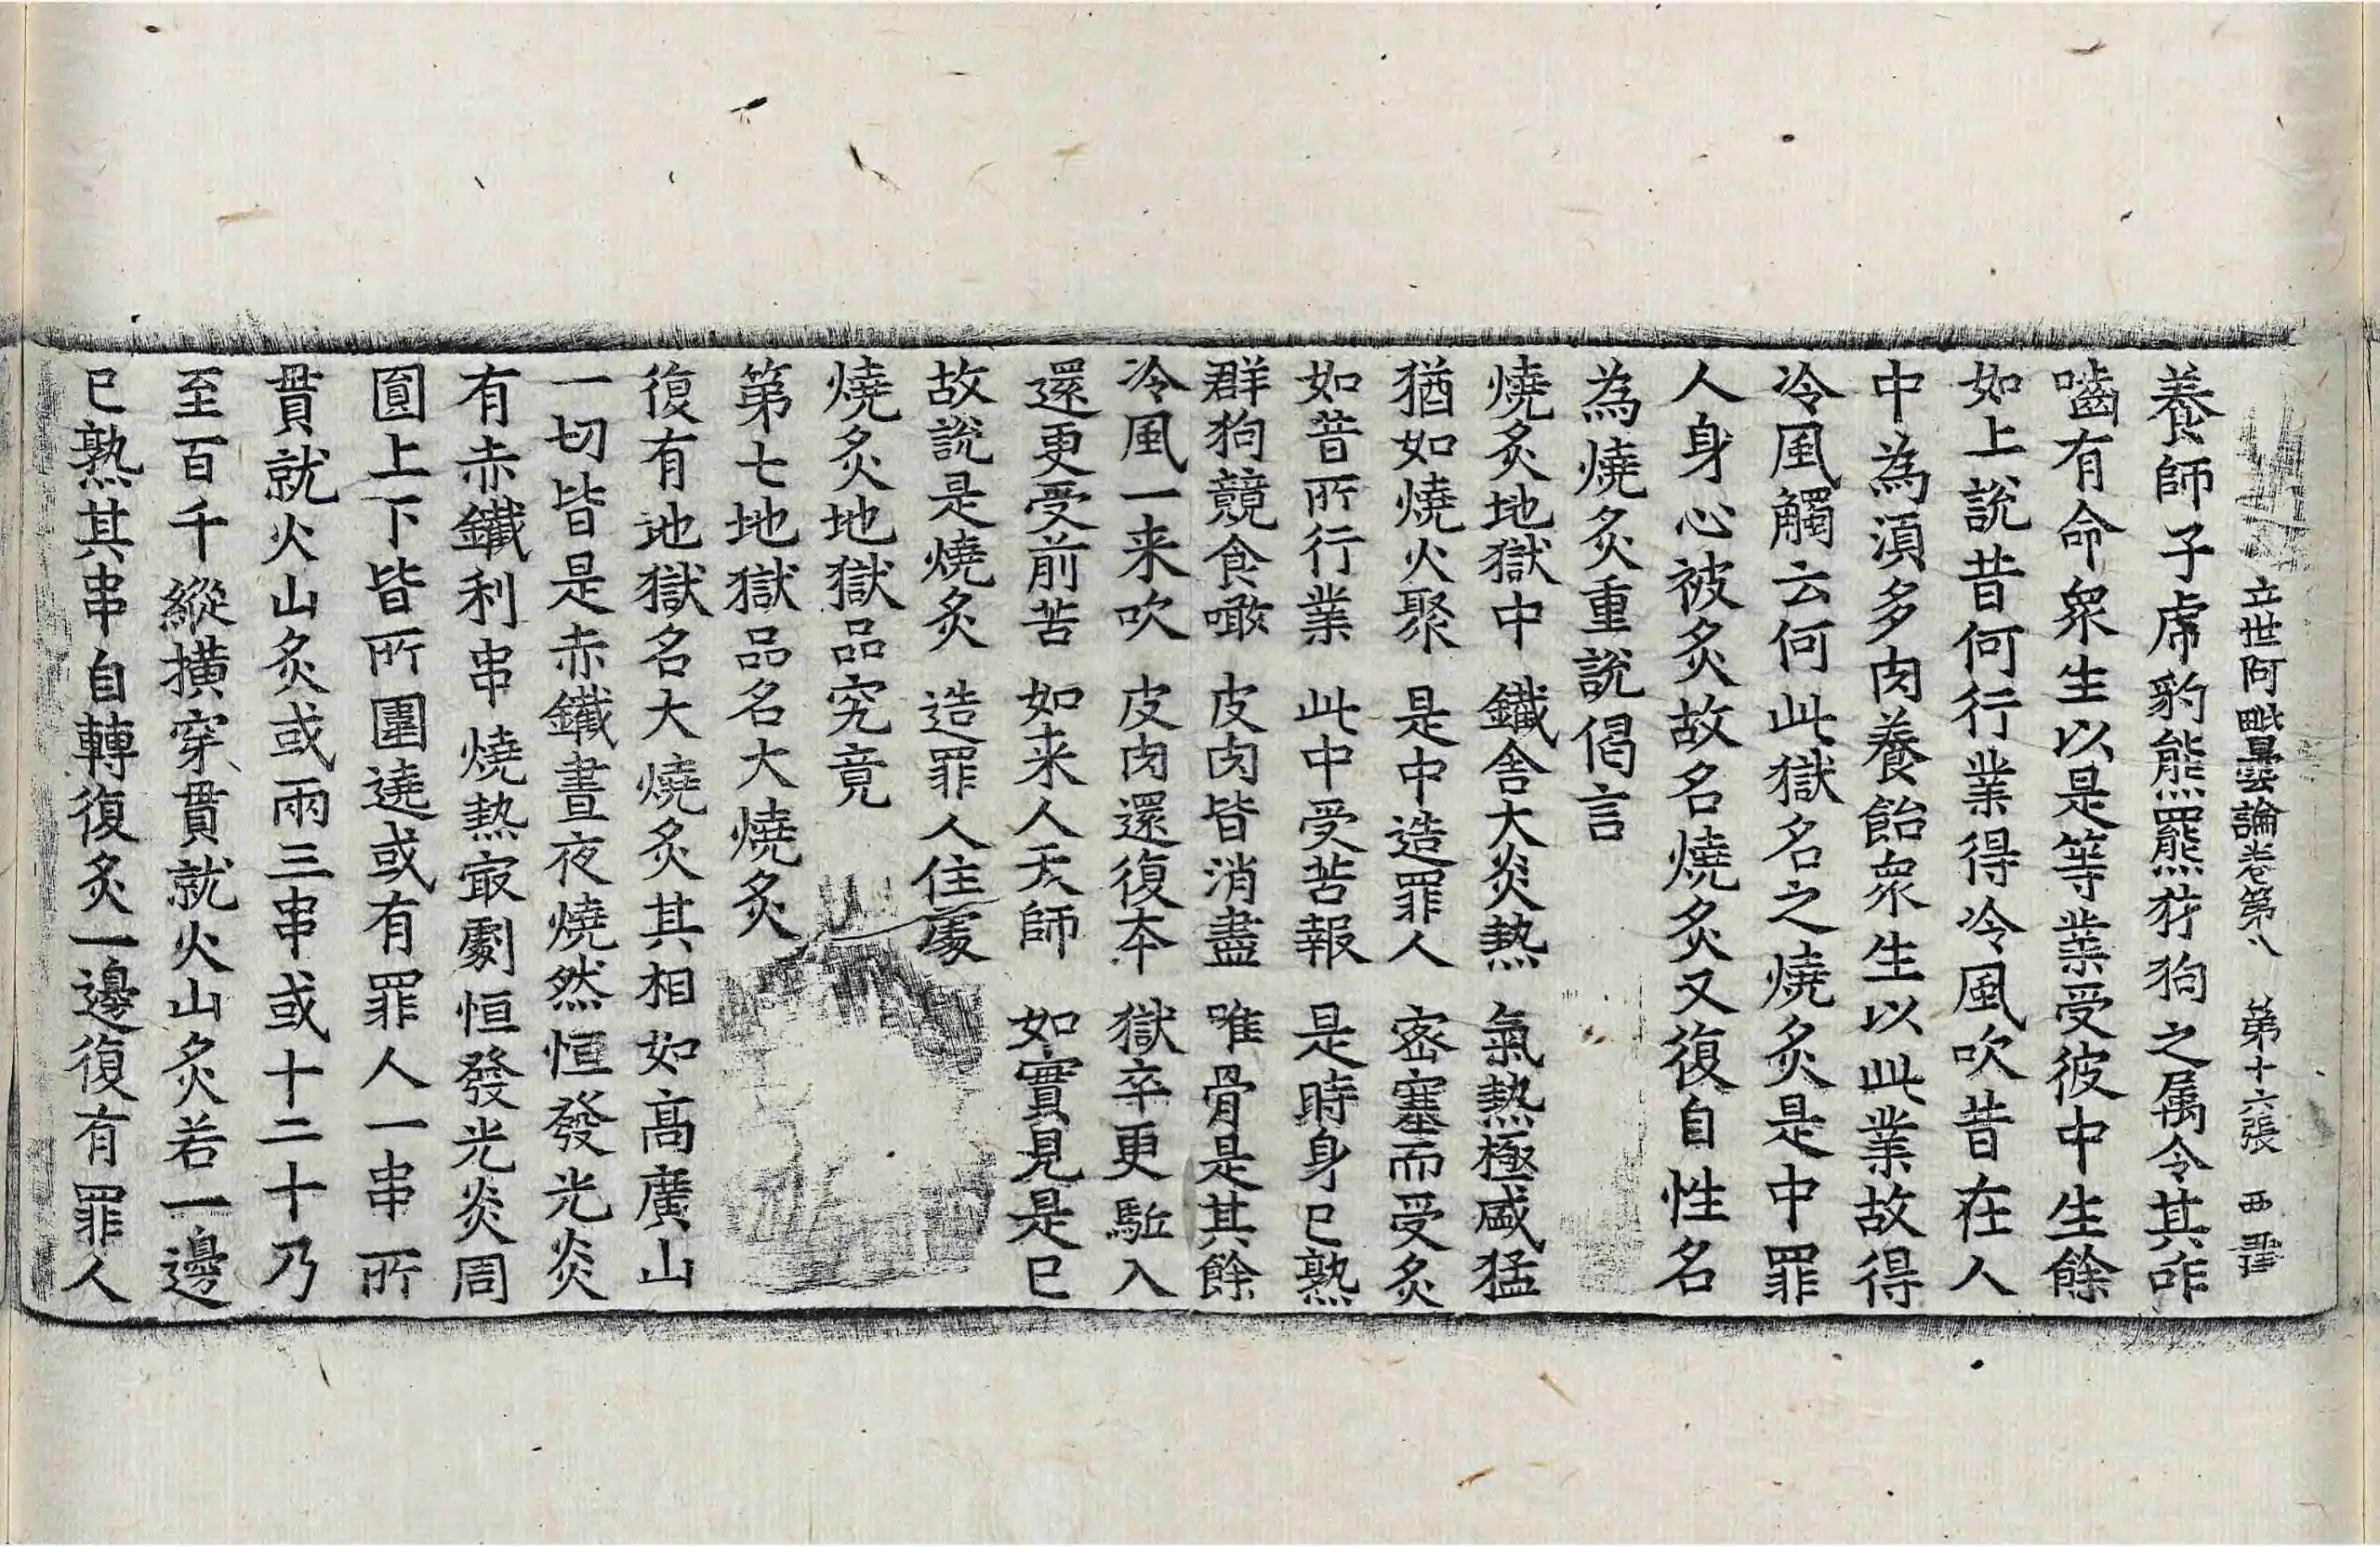 立世阿毗曇論卷第八 第十六張 西
養師子虎豹熊羆㹱狗之属令其咋
嚙有命衆生以是等業受彼中生餘
如上說昔何行業得冷風吹昔在人
中為湏多肉養飴衆生以此業故得
冷風觸云何此獄名之燒炙是中罪
人身心被炙故名燒炙又復自性名
為燒炙重說偈言
燒炙地獄中 鐵舍大炎熱 氣熱極盛猛
猶如燒火聚 是中造罪人 密塞而受炙
如昔所行業 此中受苦報 是時身已熟
群狗競食噉 皮肉皆消盡 唯骨是其餘
冷風一来吹 皮肉還復本 獄卒更駈入
還更受前苦 如来人天師 如實見是已
故說是燒炙 造罪人住處
燒炙地獄品究竟
第七地獄品名大燒炙
復有地獄名大燒炙其相如高廣山
一切皆是赤鐵晝夜燒然恒發光炎
有赤鐵利串燒熱㝡劇恒發光炎周
圓上下皆所圍遶或有罪人一串所
貫就火山炙或兩三串或十二十乃
至百千縱撗穿貫就火山炙若一邊
已熟其串自轉復炙一邊復有罪人